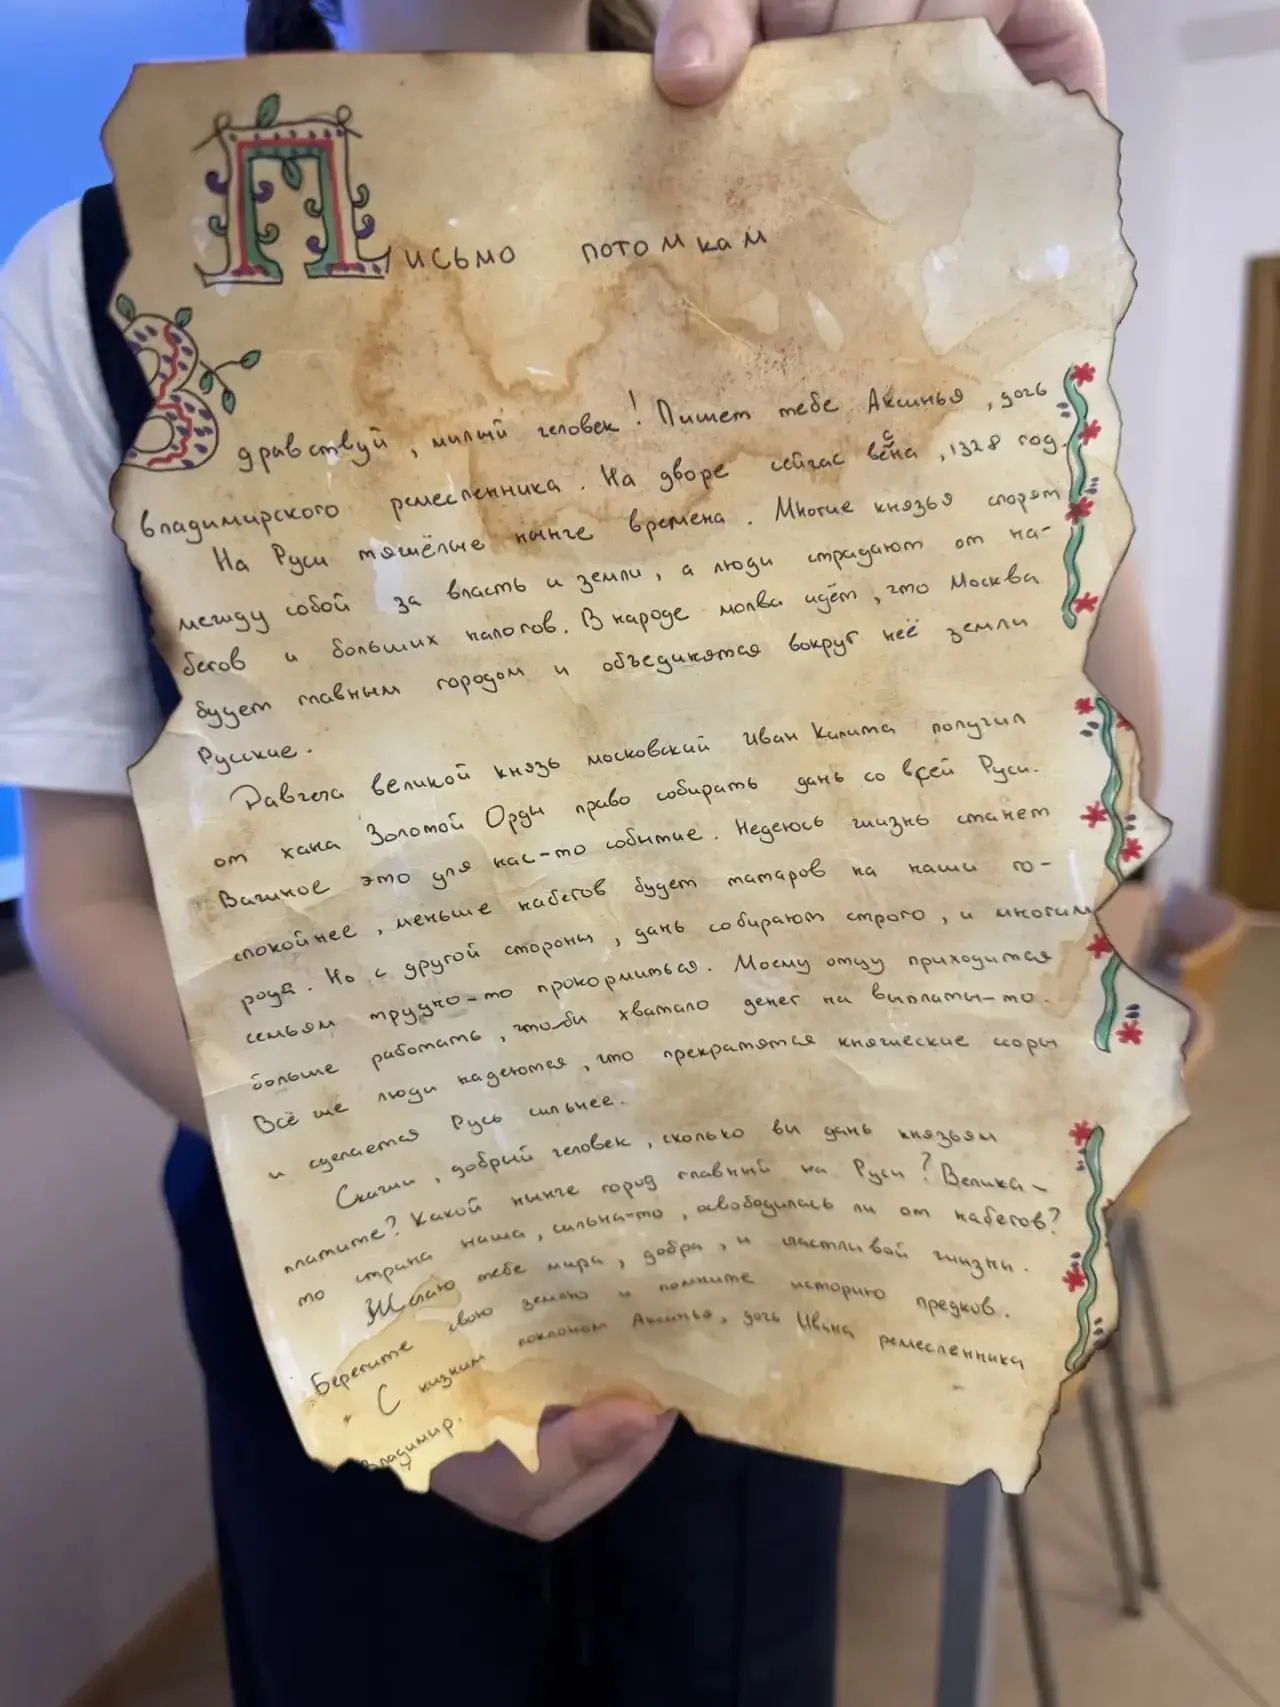 Письмо потомкам
Здравствуй, милый человек! Пишет тебе Аксинья, дочь
владимирского ремесленника. На дворе сейчас весна, 1328 год.
На Руси тяжёлые нынче времена. Многие князья спорят
между собой за власть и земли, а люди страдают от на-
бегов и больших налогов. В народе молва идёт, что Москва
будет главным городом и объединятся вокруг неё земли
Русские.
Давеча великой князь московский Иван Калита получил
от хана Золотой Орды право собирать дань со всей Руси.
Важное это для нас-то событие. Надеюсь жизнь станет
спокойнее, меньше набегов будет татаров на наши го-
рода. Но с другой стороны, дань собирают строго, и многим
семьям трудно-то прокормиться. Моему отцу приходится
больше работать, что-бы хватало денег на выплаты-то.
Всё же люди надеются, что прекратятся княжеские ссоры
и сделается Русь сильнее.
Скажи, добрый человек, сколько вы дань князьям
платите? Какой нынче город главный на Руси? Велика-
то страна наша, сильна-то, освободилась ли от набегов?
Желаю тебе мира, добра, и счастливой жизни.
Берегите свою землю и помните историю предков.
С низким поклоном Аксинья, дочь Ивана ремесленника
Владимир.